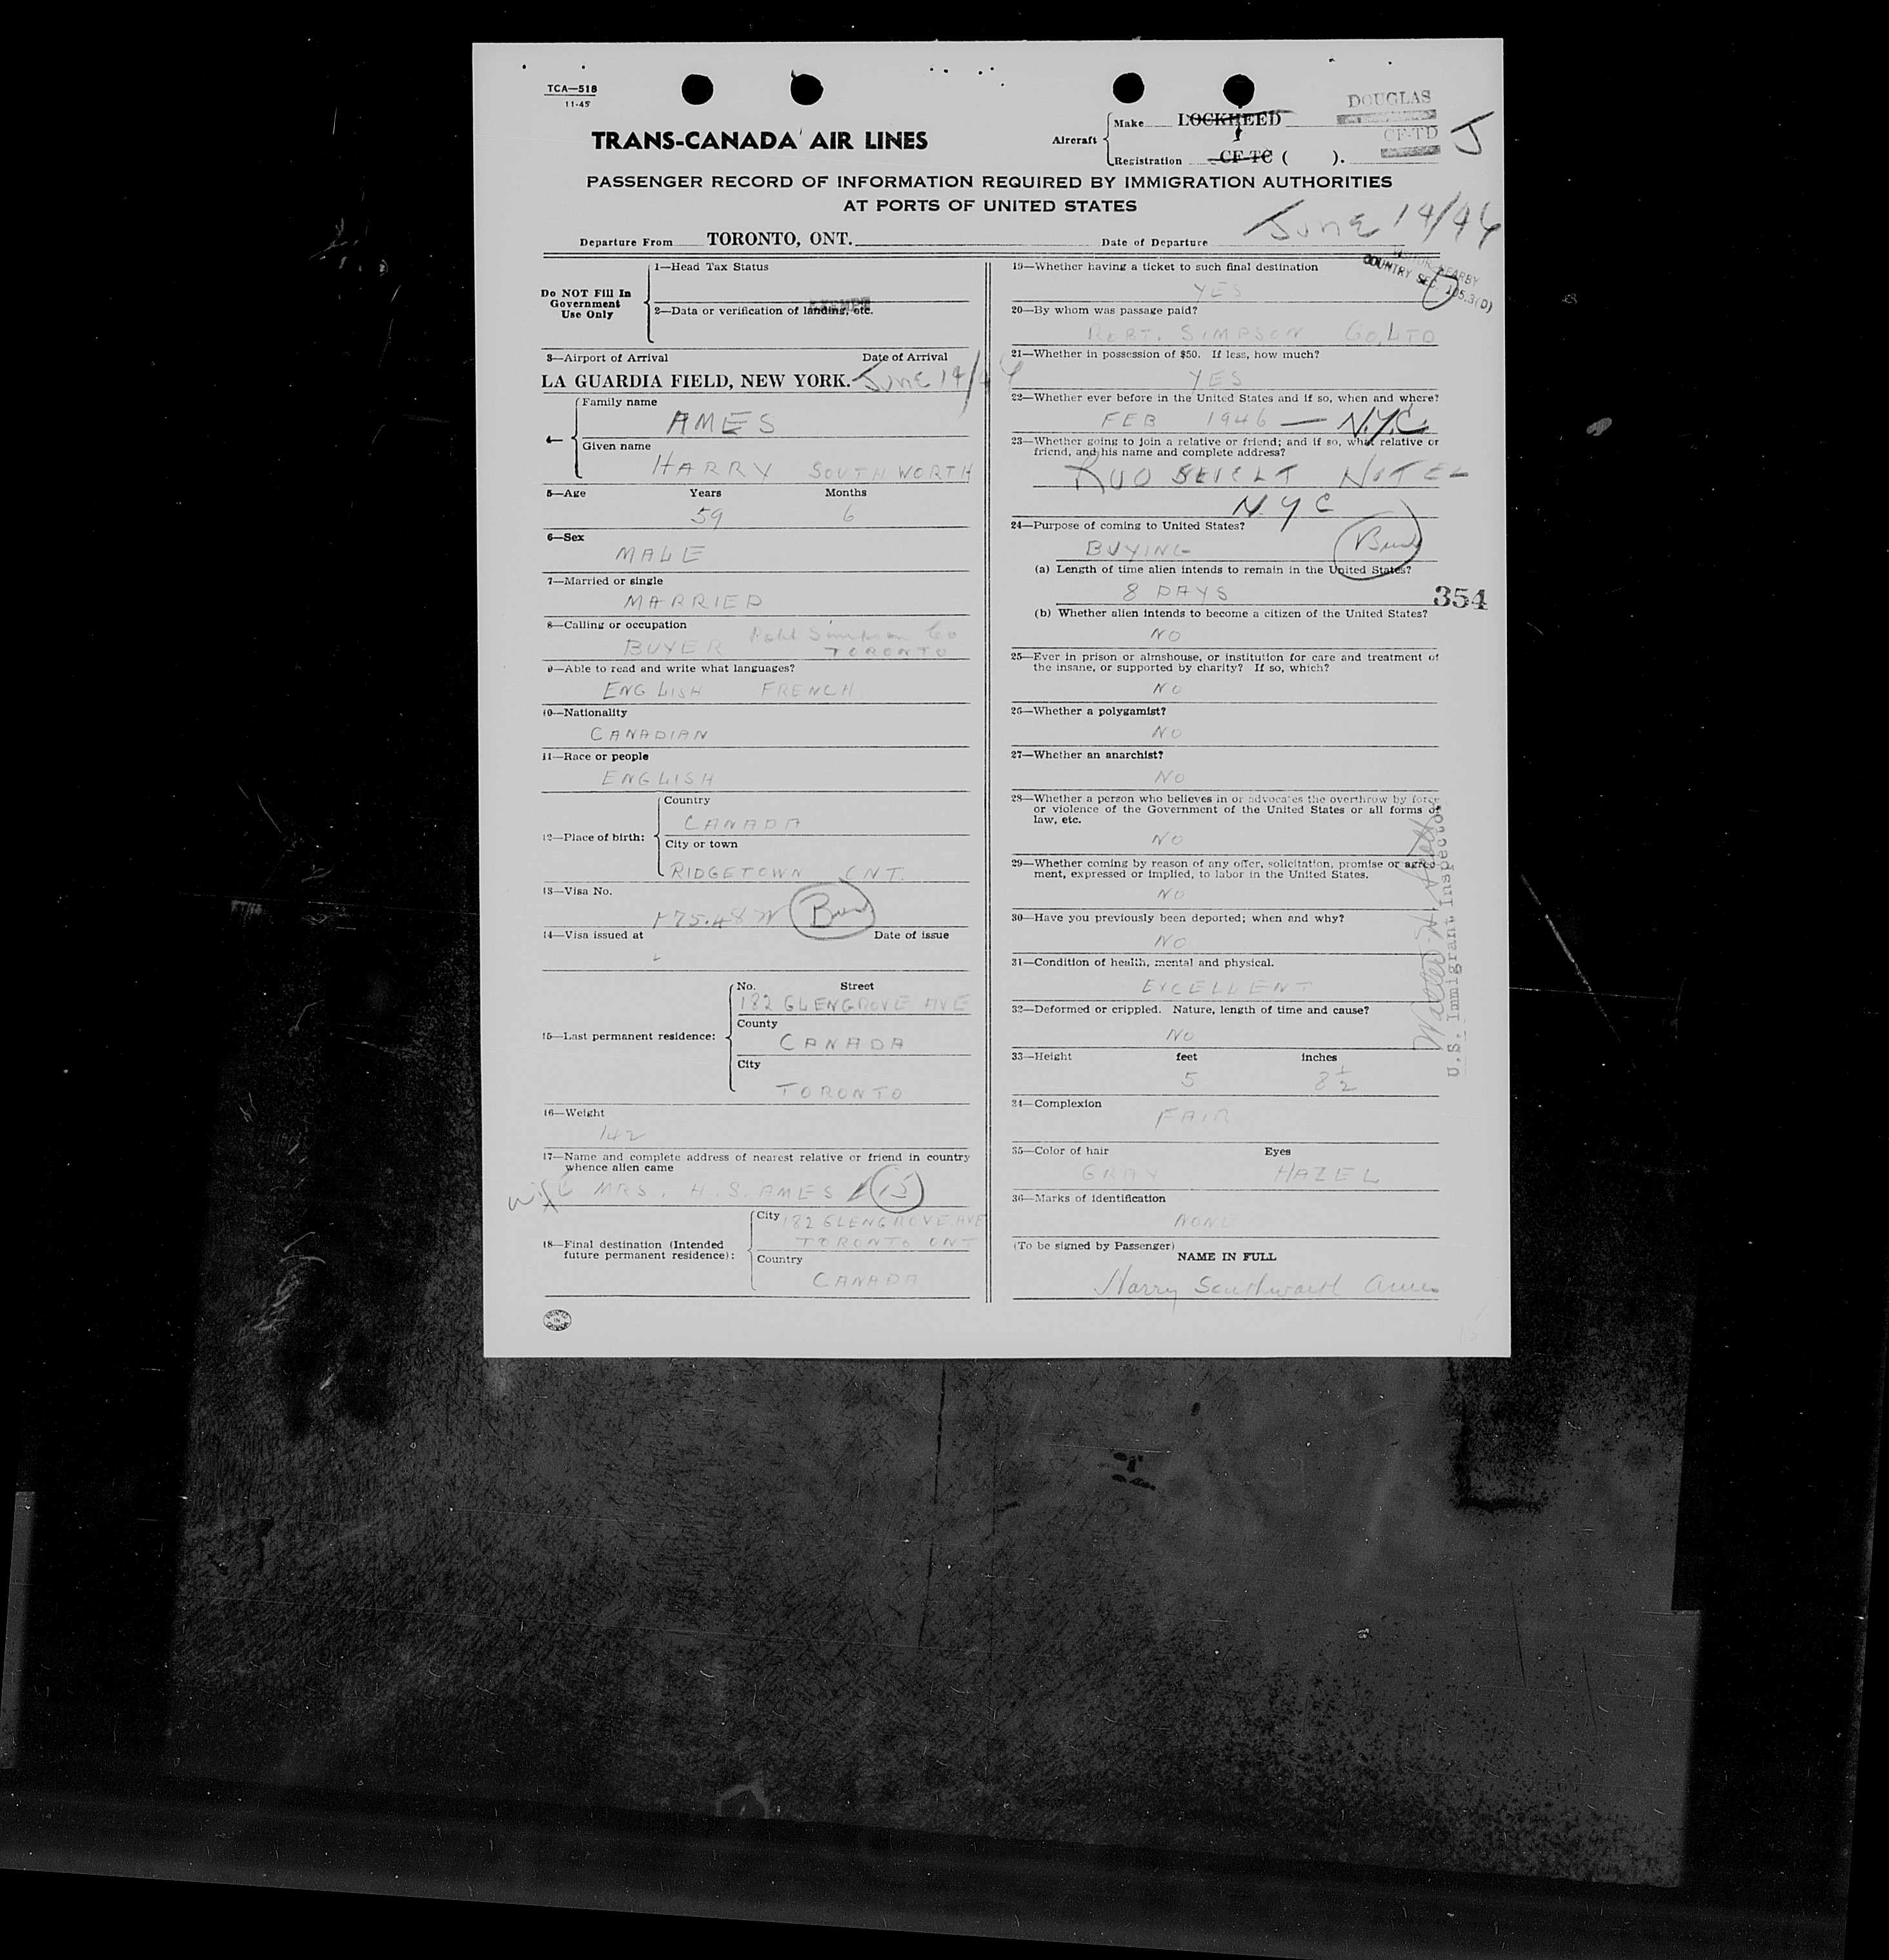 TCA—518
11-45
TRANS-CANADA AIR LINES
Aircraft
Make LOCKHEED
DOUGLAS
Registration CF-TC ( ).
CF-TD
J
PASSENGER RECORD OF INFORMATION REQUIRED BY IMMIGRATION AUTHORITIES
AT PORTS OF UNITED STATES
Departure From TORONTO, ONT.
Date of Departure June 14/46
Do NOT Fill In
Government
Use Only
1—Head Tax Status
2—Data or verification of landing, etc.
3—Airport of Arrival Date of Arrival
LA GUARDIA FIELD, NEW YORK. June 14/46
4—
Family name
AMES
Given name
HARRY SOUTHWORTH
5—Age Years Months
59 6
6—Sex
MALE
7—Married or single
MARRIED
8—Calling or occupation
BUYER Robt Simpson Co
TORONTO
9—Able to read and write what languages?
ENGLISH FRENCH
10—Nationality
CANADIAN
11—Race or people
ENGLISH
12—Place of birth:
Country
CANADA
City or town
RIDGETOWN ONT.
13—Visa No.
14—Visa issued at Date of issue
15—Last permanent residence:
No. Street
182 GLENGROVE AVE
County
CANADA
City
TORONTO
16—Weight
142
17—Name and complete address of nearest relative or friend in country
whence alien came
wife MRS. H. S. AMES (15)
18—Final destination (Intended
future permanent residence):
City 182 GLENGROVE AVE
TORONTO ONT
Country
CANADA
PRINTED
IN
CANADA
19—Whether having a ticket to such final destination
COUNTRY SEC. 195.3(D)
NEARBY
YES
20—By whom was passage paid?
ROBT. SIMPSON CO. LTD
21—Whether in possession of $50. If less, how much?
YES
22—Whether ever before in the United States and if so, when and where?
FEB 1946 — N.Y.C.
23—Whether going to join a relative or friend; and if so, what relative or
friend, and his name and complete address?
ROOSEVELT HOTEL
N Y C
24—Purpose of coming to United States?
BUYING
(a) Length of time alien intends to remain in the United States?
8 DAYS
354
(b) Whether alien intends to become a citizen of the United States?
NO
25—Ever in prison or almshouse, or institution for care and treatment of
the insane, or supported by charity? If so, which?
NO
26—Whether a polygamist?
NO
27—Whether an anarchist?
NO
28—Whether a person who believes in or advocates the overthrow by force
or violence of the Government of the United States or all forms of
law, etc.
NO
29—Whether coming by reason of any offer, solicitation, promise or agree-
ment, expressed or implied, to labor in the United States.
NO
30—Have you previously been deported; when and why?
NO
31—Condition of health, mental and physical.
EXCELLENT
32—Deformed or crippled. Nature, length of time and cause?
NO
33—Height feet inches
5 8 1/2
34—Complexion
FAIR
35—Color of hair Eyes
GRAY HAZEL
36—Marks of identification
NONE
(To be signed by Passenger)
NAME IN FULL
Harry Southworth Ames
U.S. Immigrant Inspector